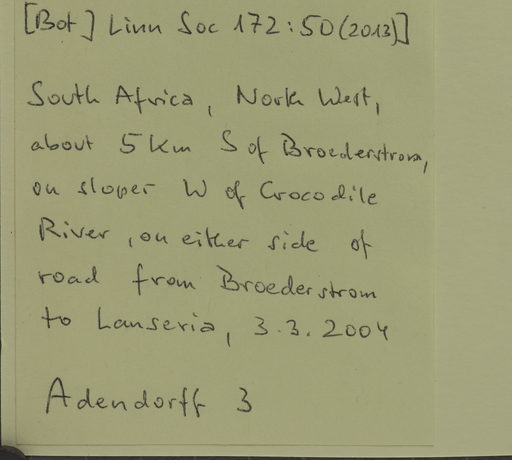 [Bot] Linn Soc 172:50(2013)]
South Africa, North West,
about 5 km S of Broederstrom,
on slopes W of Crocodile
River, on either side of
road from Broederstrom
to Lanseria, 3.3.2004
Adendorff 3